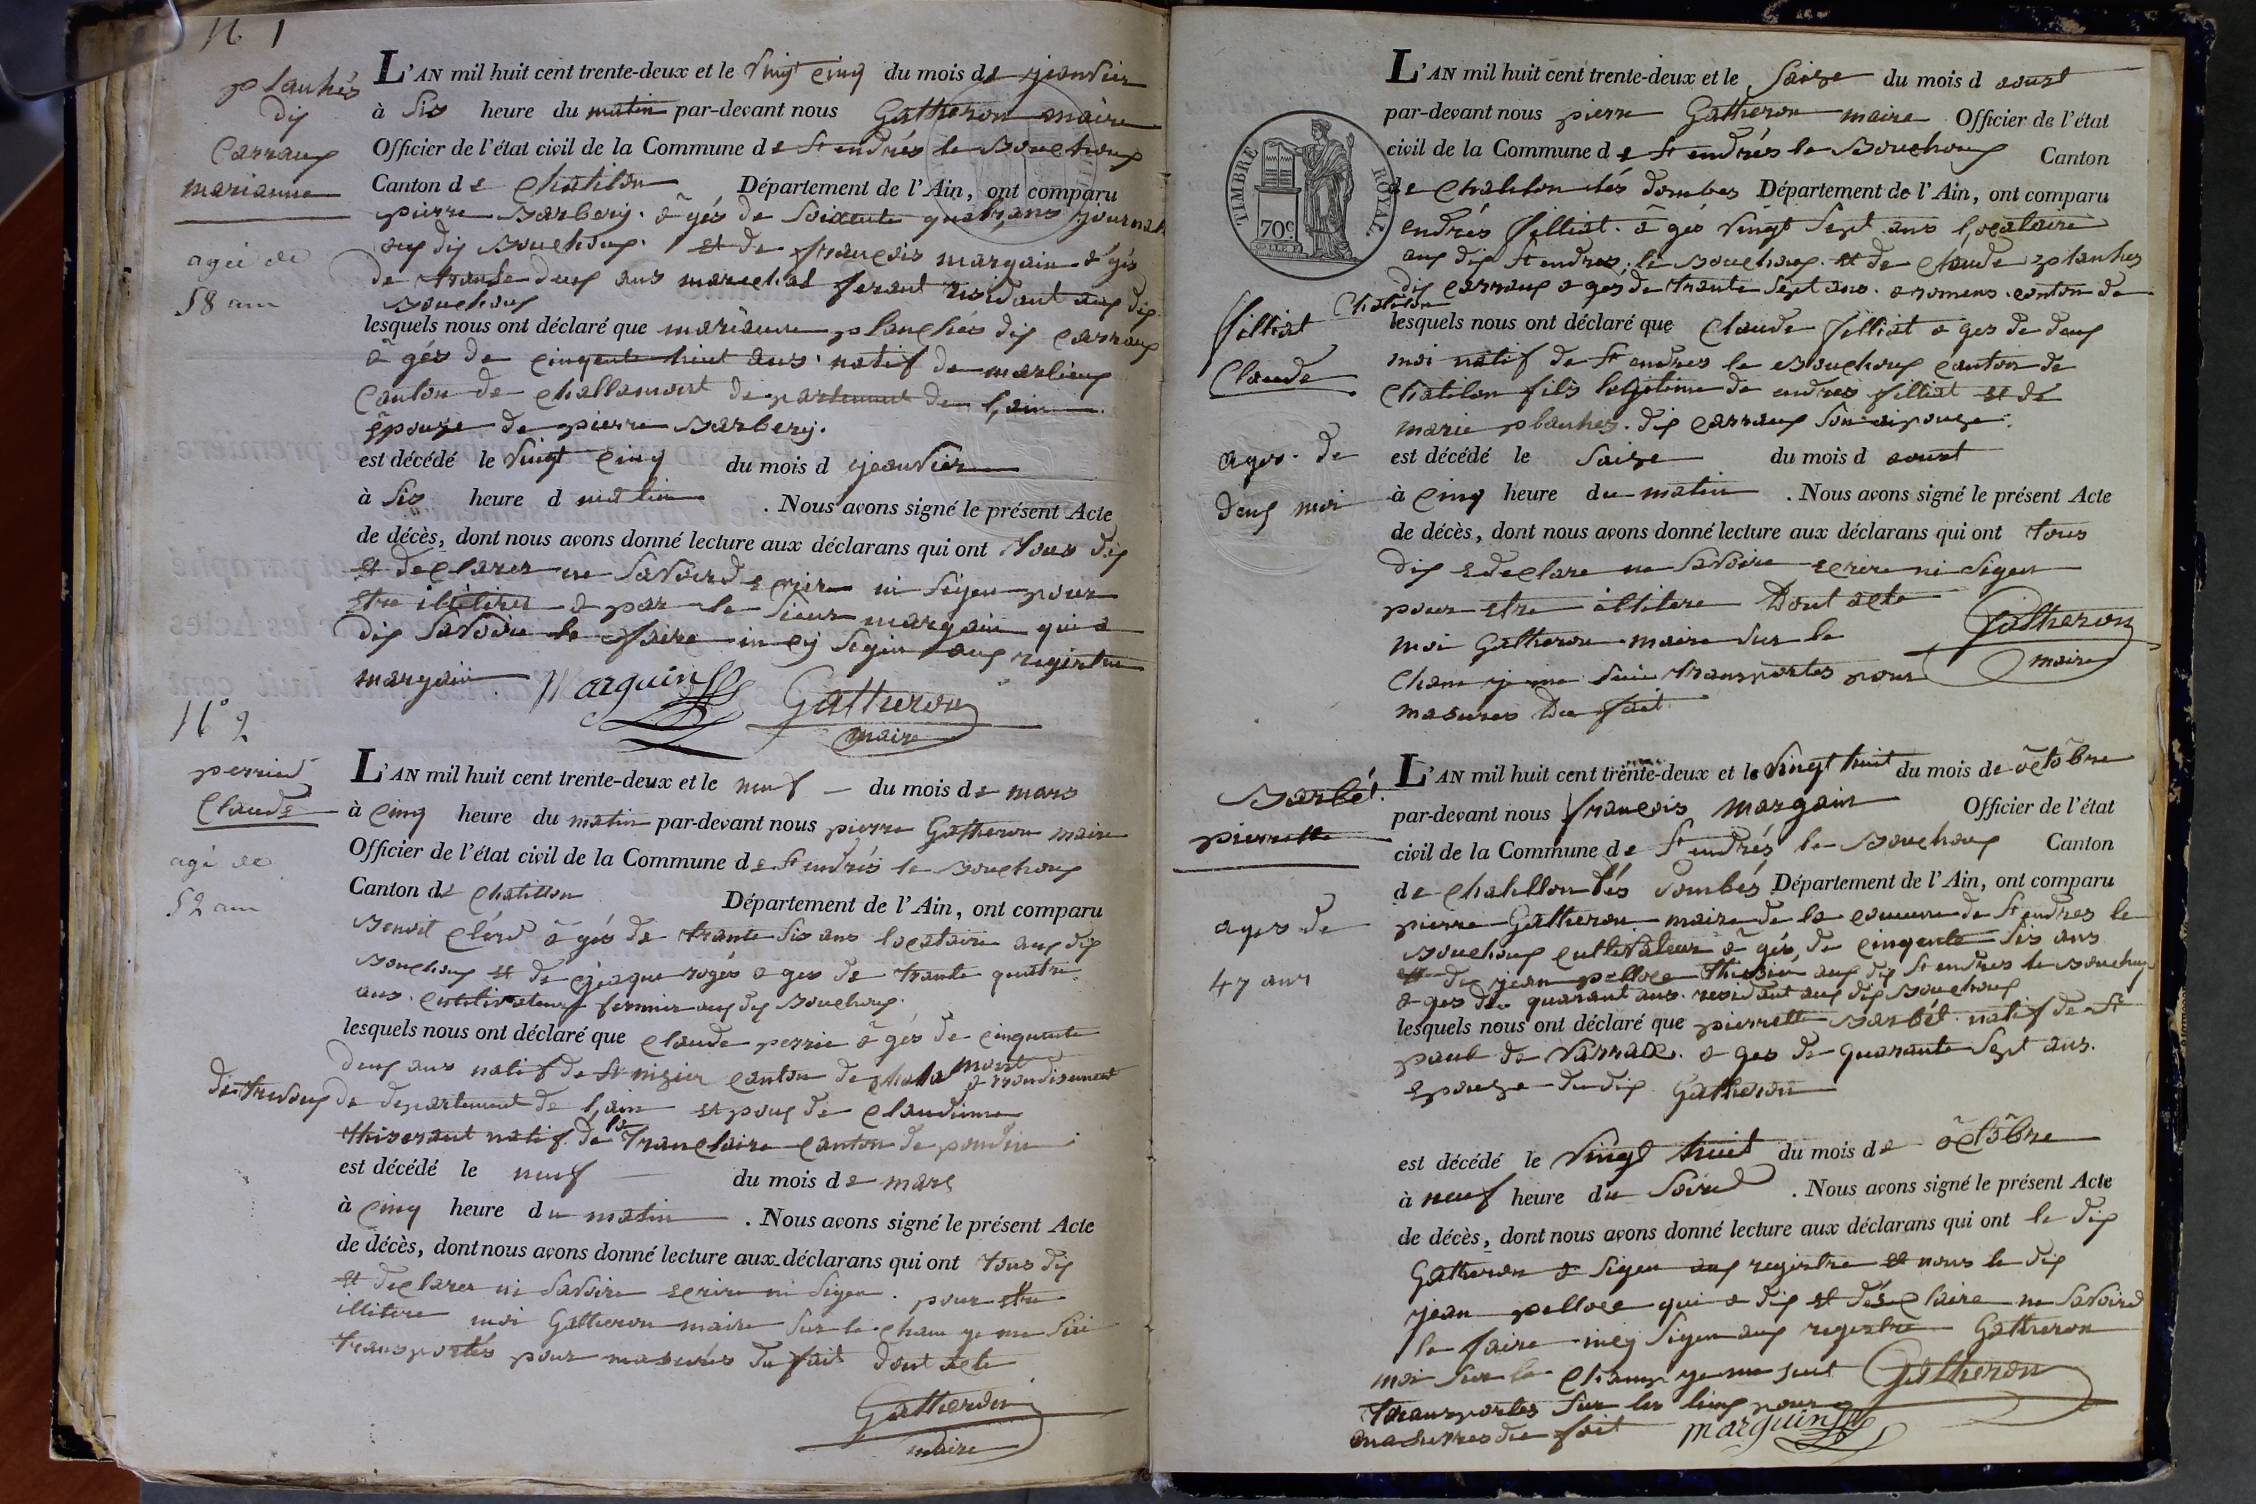 N 1
planhés
dis
Carraux
marianne
agée de
58 ans
L'AN mil huit cent trente-deux et le vingt cinq du mois de jeanvier
à Sis heure du matin par-devant nous Gatheron maire
Officier de l'état civil de la Commune de St endrés le Bouchoux
Canton de Chatilon Département de l'Ain, ont comparu
pierre Barberij. â gés de Soixente quatr, ans journal
aux dis Bouchoux. et de françois margain â gés
de trante deux ans marechal ferant risidant aux dis
Bouchoux
lesquels nous ont déclaré que marianne planchés dis Carraux
â gés de Cinqente huit ans. natif de marlieux
Canton de Challamont departement den l,ain
épouze de pierre Barberij.
est décédé le vingt Cinq du mois d ejeanvier
à Sis heure d matin . Nous avons signé le présent Acte
de décès, dont nous avons donné lecture aux déclarans qui ont tous dis
et declarer ne Savoird ecrire ni Sigen pour
etre illitere e par le Sieur margain qui a
dis Savoire le faire in cy Sigen aux registre
margain Marguin Gatheron
maire
N° 2
perried
Claude
agé de
52 ans
L'AN mil huit cent trente-deux et le neuf du mois de mars
à Cinq heure du matin par-devant nous pierre Gatheron maire
Officier de l'état civil de la Commune de St endrés le Bouchoux
Canton de Chatillon Département de l'Ain, ont comparu
Benoit Clerd â gés de trante Sis ans locataire aux dis
Bouchoux et de jeaque rogés a ges de trante quatre
ans. Cultivateurs fermier aux dis Bouchoux.
lesquels nous ont déclaré que Claude perrie â gés de Cinquante
deux ans natif de St nizier Canton de Chalamont
arrondisement
de trevoux de departement de l,ain et poux de Claudinne
thiserant natif de la Tranclaire Canton de pondin
est décédé le neuf du mois de mars
à Cinq heure du matin . Nous avons signé le présent Acte
de décès, dont nous avons donné lecture aux déclarans qui ont tous dis
et declarer ni Savoire ecrire ni Sigen. pour etre
illitere moi Gatheron maire Sur le Cham ye me Sui
transportés pour masurés du fait dont acte
Gatheron
maire
TIMBRE ROYAL
70c
L'AN mil huit cent trente-deux et le Saize du mois d aoust
par-devant nous pierre Gatheron maire Officier de l'état
civil de la Commune de St endrés le Bouchoux Canton
de Chatilon lés dombes Département de l'Ain, ont comparu
endrés filliat. â gés vingt Sept ans l,ocataire
aux dis St endres, le Bouchoux. et de Claude planhes
dis Carraux a ges de trante Sept ans. a romens. canton de
Chatilon
filliat
Claude
ages. de
deux moi
lesquels nous ont déclaré que Claude filliat a ges de deux
moi natif de St endres le Bouchoux Canton de
Chatilon fils legitime de endres filliat et de
marie planhes. dis Carraux Son aipouze.
est décédé le Saize du mois d aoust
à Cinq heure du matin . Nous avons signé le présent Acte
de décès, dont nous avons donné lecture aux déclarans qui ont tous
dis e declare ne Savoire ecrire ni Sigen
pour etre illitere Dont acte
moi Gatheron maire Sur le Gatheron
maire
Cham ye me Suis transportes pour
masures Du fait
Barbét.
pierrette
ages de
47 ans
L'AN mil huit cent trente-deux et le vingt huit du mois de octobre
par-devant nous françois margain Officier de l'état
civil de la Commune de St endrés le Bouchoux Canton
de Chatillon lés Dombés Département de l'Ain, ont comparu
pierre Gatheron maire de la comune de St endres le
Bouchoux cultivateur â gés de Cinqente Sis ans
et de jean pelloce thissié aux dis St endres le Bouchoux
a ges de quarant ans. residant aux dis Bouchoux
lesquels nous ont déclaré que pierrette Barbét natif de St
paul de Varrax. a ges de quarante Sept ans.
epouze du dis Gatheron
est décédé le vingt huit du mois de octobre
à neuf heure du Soird . Nous avons signé le présent Acte
de décès, dont nous avons donné lecture aux déclarans qui ont le dis
Gatheron a Sigen aux registre et nous le dis
jean pelloce qui a dis et dés claire ne Savoird
le faire incy Sigen aux registre Gatheron
moi Sur le Champ ye me suit Gatheron
transportes Sur les lieux pour
masurres du fait marguin